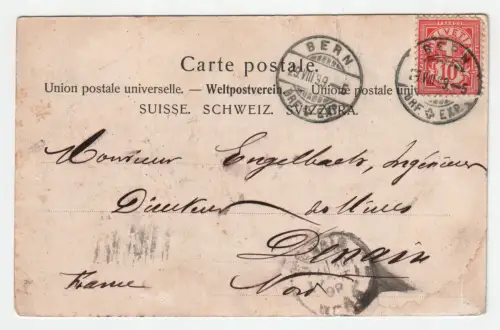 Carte postale.
Union postale universelle. — Weltpostverein — Unione postale univ
SUISSE. SCHWEIZ. SVIZZERA.
BERN
BRF. EXP.
HELVETIA
10
BERN
BRF. EXP.
Monsieur Engelbach, Ingénieur
Directeur des Mines
Denain
France Nord